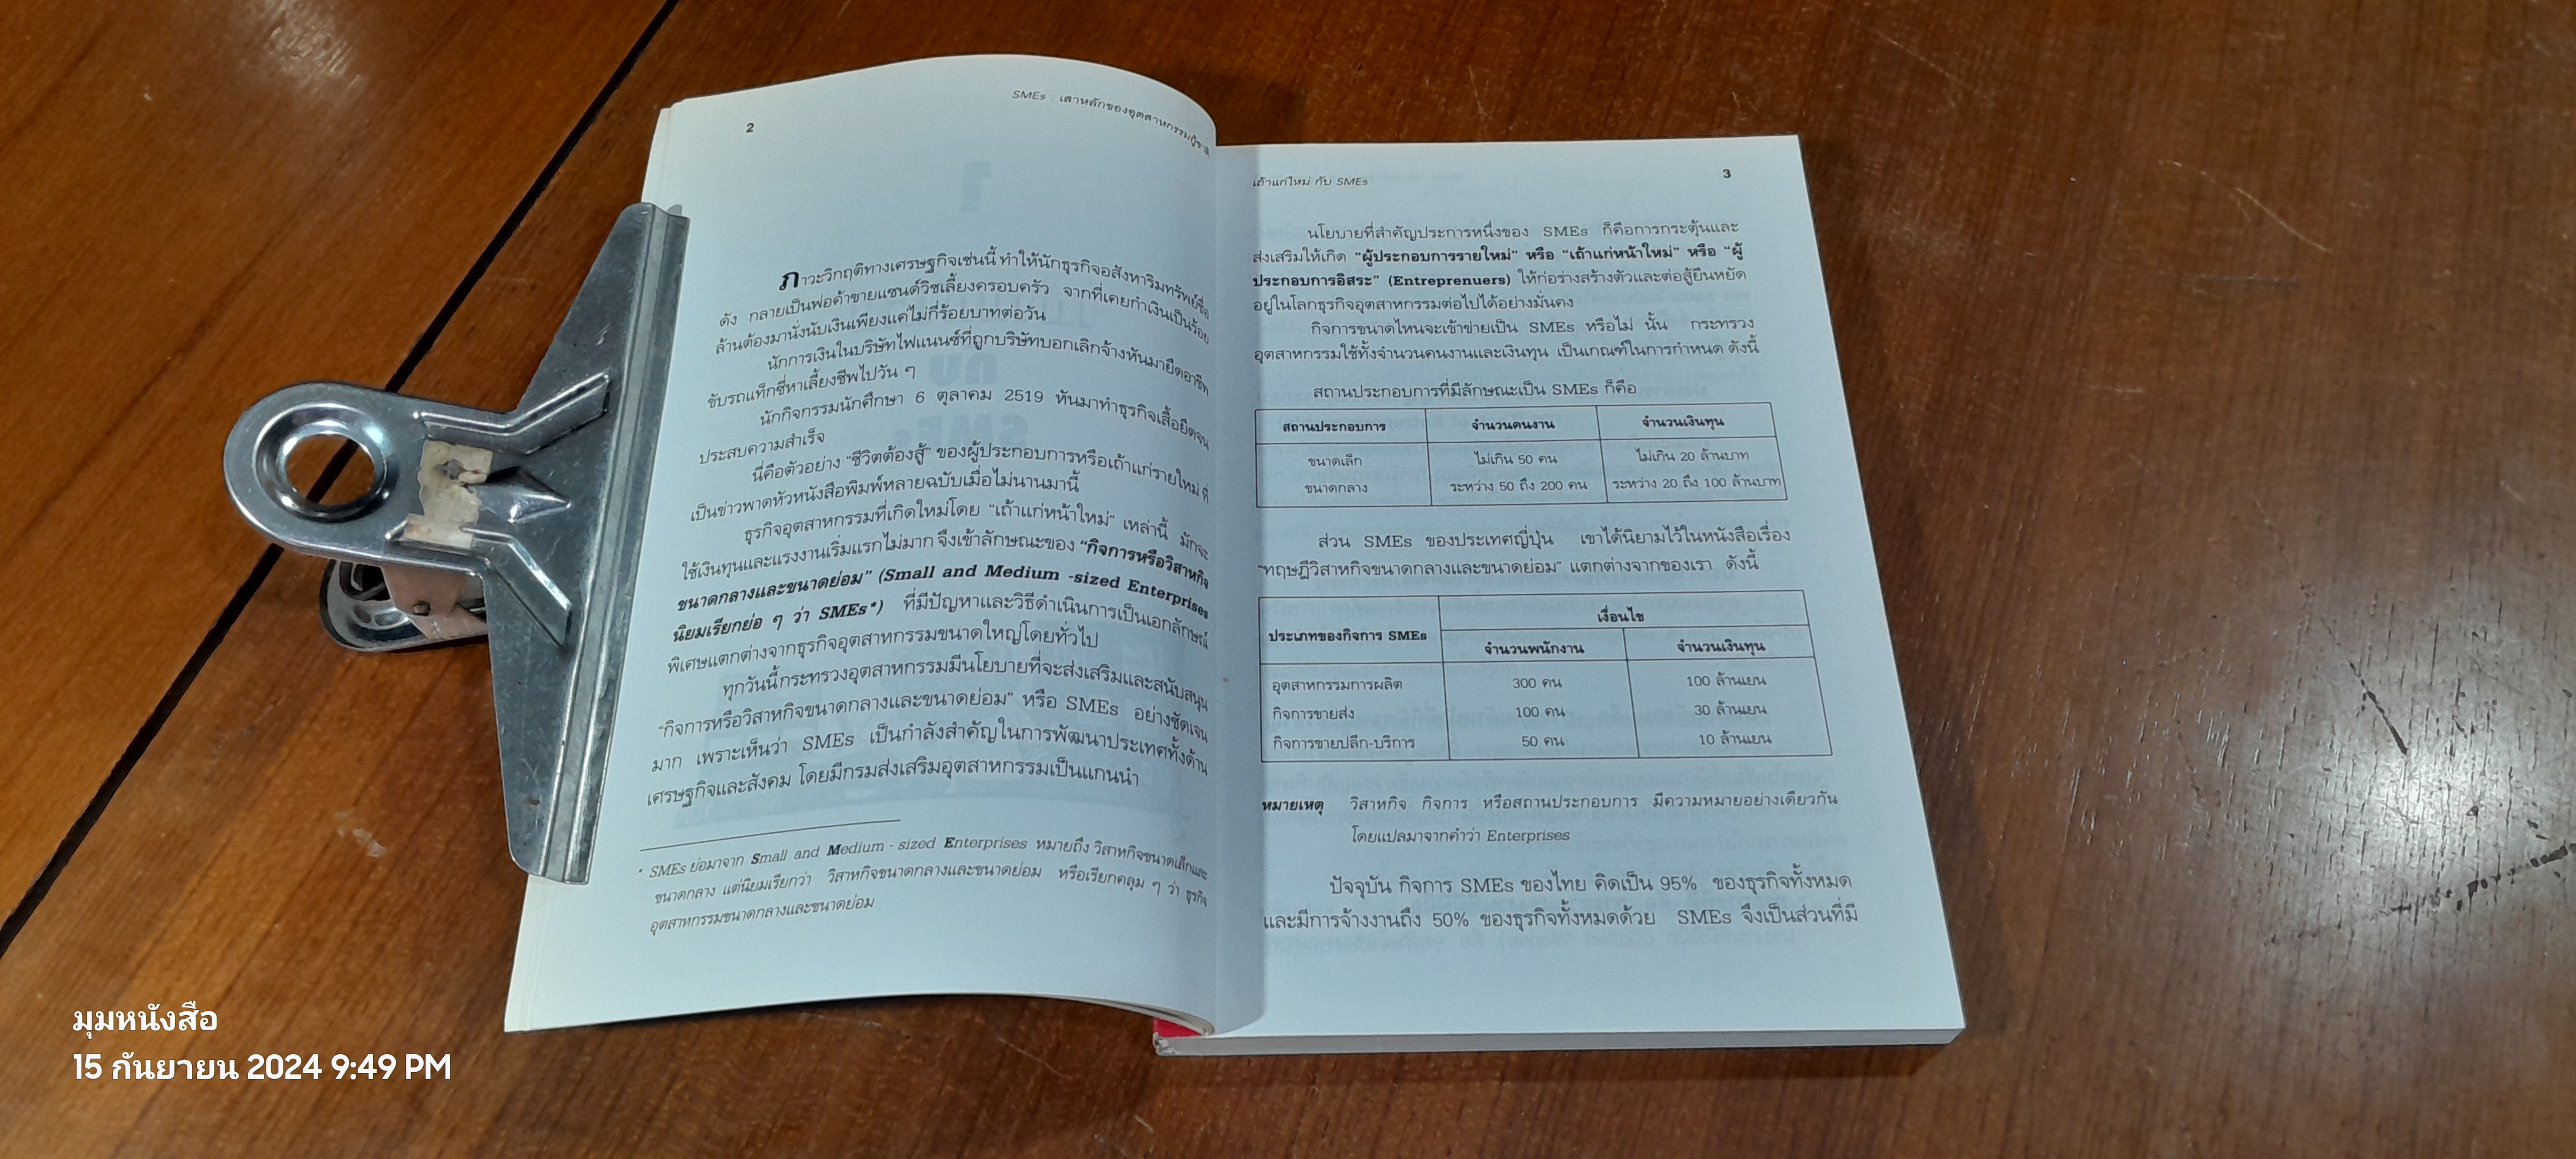 2
SMEs : เสาหลักของอุตสาหกรรม
ภาวะวิกฤติทางเศรษฐกิจเช่นนี้ ทำให้นักธุรกิจอสังหาริมทรัพย์ชื่อ
ดัง กลายเป็นพ่อค้าขายแซนด์วิชเลี้ยงครอบครัว จากที่เคยกำเงินเป็นร้อย
ล้านต้องมานั่งนับเงินเพียงแค่ไม่กี่ร้อยบาทต่อวัน
นักการเงินในบริษัทไฟแนนซ์ที่ถูกบริษัทบอกเลิกจ้างหันมายึดอาชีพ
ขับรถแท็กซี่หาเลี้ยงชีพไปวัน ๆ
นักกิจกรรมนักศึกษา 6 ตุลาคม 2519 หันมาทำธุรกิจเสื้อยืดจน
ประสบความสำเร็จ
นี่คือตัวอย่าง "ชีวิตต้องสู้" ของผู้ประกอบการหรือเถ้าแก่รายใหม่ ที่
เป็นข่าวพาดหัวหนังสือพิมพ์หลายฉบับเมื่อไม่นานมานี้
ธุรกิจอุตสาหกรรมที่เกิดใหม่โดย "เถ้าแก่หน้าใหม่" เหล่านี้ มักจะ
ใช้เงินทุนและแรงงานเริ่มแรกไม่มาก จึงเข้าลักษณะของ "กิจการหรือวิสาหกิจ
ขนาดกลางและขนาดย่อม" (Small and Medium -sized Enterprises
นิยมเรียกย่อ ๆ ว่า SMEs*) ที่มีปัญหาและวิธีดำเนินการเป็นเอกลักษณ์
พิเศษแตกต่างจากธุรกิจอุตสาหกรรมขนาดใหญ่โดยทั่วไป
ทุกวันนี้กระทรวงอุตสาหกรรมมีนโยบายที่จะส่งเสริมและสนับสนุน
"กิจการหรือวิสาหกิจขนาดกลางและขนาดย่อม" หรือ SMEs อย่างชัดเจน
มาก เพราะเห็นว่า SMEs เป็นกำลังสำคัญในการพัฒนาประเทศทั้งด้าน
เศรษฐกิจและสังคม โดยมีกรมส่งเสริมอุตสาหกรรมเป็นแกนนำ
* SMEs ย่อมาจาก Small and Medium - sized Enterprises หมายถึง วิสาหกิจขนาดเล็กและ
ขนาดกลาง แต่นิยมเรียกว่า วิสาหกิจขนาดกลางและขนาดย่อม หรือเรียกคลุม ๆ ว่า ธุรกิจ
อุตสาหกรรมขนาดกลางและขนาดย่อม
เถ้าแก่ใหม่ กับ SMEs
3
นโยบายที่สำคัญประการหนึ่งของ SMEs ก็คือการกระตุ้นและ
ส่งเสริมให้เกิด "ผู้ประกอบการรายใหม่" หรือ "เถ้าแก่หน้าใหม่" หรือ "ผู้
ประกอบการอิสระ" (Entreprenuers) ให้ก่อร่างสร้างตัวและต่อสู้ยืนหยัด
อยู่ในโลกธุรกิจอุตสาหกรรมต่อไปได้อย่างมั่นคง
กิจการขนาดไหนจะเข้าข่ายเป็น SMEs หรือไม่ นั้น กระทรวง
อุตสาหกรรมใช้ทั้งจำนวนคนงานและเงินทุน เป็นเกณฑ์ในการกำหนด ดังนี้
สถานประกอบการที่มีลักษณะเป็น SMEs ก็คือ
สถานประกอบการ จำนวนคนงาน จำนวนเงินทุน
ขนาดเล็ก ไม่เกิน 50 คน ไม่เกิน 20 ล้านบาท
ขนาดกลาง ระหว่าง 50 ถึง 200 คน ระหว่าง 20 ถึง 100 ล้านบาท
ส่วน SMEs ของประเทศญี่ปุ่น เขาได้นิยามไว้ในหนังสือเรื่อง
"ทฤษฎีวิสาหกิจขนาดกลางและขนาดย่อม" แตกต่างจากของเรา ดังนี้
ประเภทของกิจการ SMEs เงื่อนไข
จำนวนพนักงาน จำนวนเงินทุน
อุตสาหกรรมการผลิต 300 คน 100 ล้านเยน
กิจการขายส่ง 100 คน 30 ล้านเยน
กิจการขายปลีก-บริการ 50 คน 10 ล้านเยน
หมายเหตุ วิสาหกิจ กิจการ หรือสถานประกอบการ มีความหมายอย่างเดียวกัน
โดยแปลมาจากคำว่า Enterprises
ปัจจุบัน กิจการ SMEs ของไทย คิดเป็น 95% ของธุรกิจทั้งหมด
และมีการจ้างงานถึง 50% ของธุรกิจทั้งหมดด้วย SMEs จึงเป็นส่วนที่มี
มุมหนังสือ
15 กันยายน 2024 9:49 PM